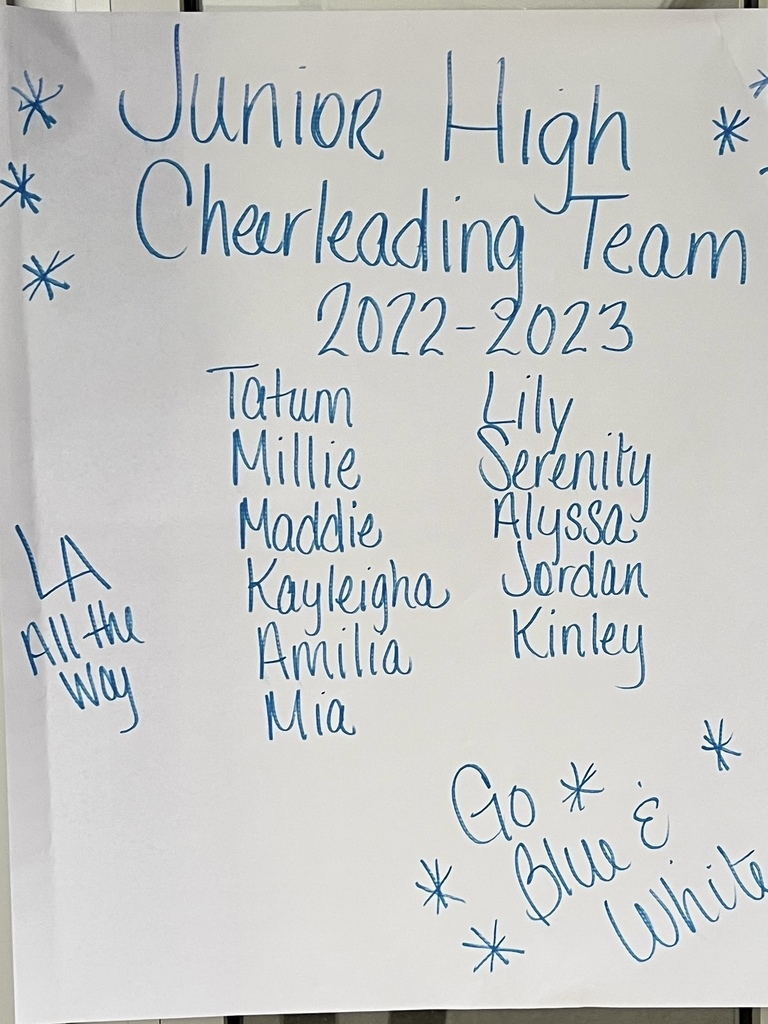 Junior High
Cheerleading Team
2022-2023
Tatum
Millie
Maddie
Kayleigha
Amilia
Mia
Lily
Serenity
Alyssa
Jordan
Kinley
LA
All the
Way
Go
Blue &
White